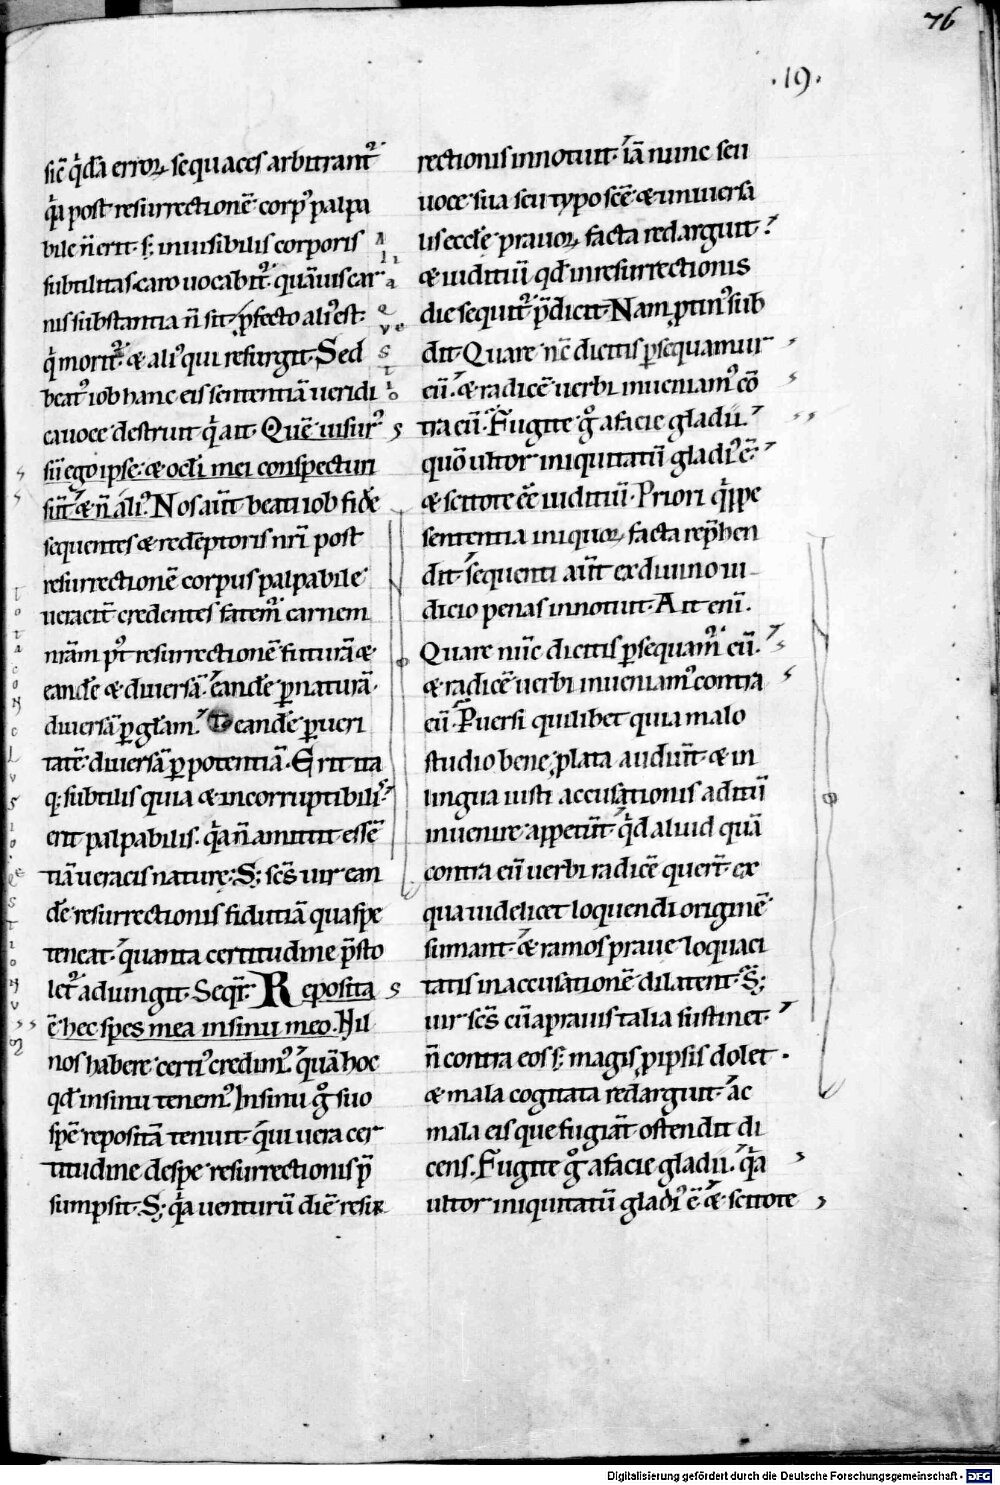 76
.19.
sic̄ qͥdā erroꝝ sequaces arbitrantᷣ
qͥa post resurrectionē corpꝰ palpa
bile n̄ erit· s; inuisibilis corporis
subtilitas· caro uocabitᷣ· quāuis car
nis substantia n̄ sit· ꝓfecto aliꝰ est·
qͥ moritᷣ· & aliꝰ qui resurgit· Sed
beatꝰ iob hanc eis sententiā ueridi
ca uoce destruit qͥ ait· Quē uisurꝰ
sū ego ipse· & ocl̄i mei conspecturi
sūt· & n̄ aliꝰ· Nos aūt beati iob fidē
sequentes & redēptoris nr̄i post
resurrectionē corpus palpabile
ueracit̄ credentes fatemᷣ carnem
nrām pꝰt resurrectionē futurā &
eandē & diuersā· eandē ꝑ naturā·
diuersā ꝑ gl̄am· eandē ꝑ ueri
tatē· diuersā ꝑ potentiā· Erit ita
q; subtilis quia & incorruptibilis·
erit palpabilis· qͥa n̄ amittit essē
tiā ueracis naturę· S; sc̄s uir ean
dē resurrectionis fidutiā qua spe
teneat· quanta certitudine p̄sto
letᷣ adiungit· Seqͭ· Reposita
ē hec spes mea in sinu meo· Nil
nos habere certiꝰ credimᷣ· quā hoc
qd̄ in sinu tenemꝰ· In sinu gͦ suo
spē repositā tenuit· qͥ uera cer
titudine de spe resurrectionis p̄
sumpsit· S; qͥa uenturū diē resur
rectionis innotuit· iā nunc seu
uoce sua seu typo sc̄e & uniuersa
lis eccl̄e prauoꝝ facta redarguit·
& iuditiū qd̄ in resurrectionis
die sequitᷣ p̄dicit· Nam ꝓtinꝰ sub
dit· Quare nc̄ dicitis ꝑsequamur
eū· & radicē uerbi inueniamꝰ cō
tra eū· Fugite gͦ a facie gladii·
quō ultor iniquitatū gladiꝰ ē·
& scitote eē iuditiū· Priori qͥppe
sententia iniquoꝝ facta rep̄hen
dit· sequenti aūt ex diuino iu
dicio penas innotuit· Ait enī·
Quare nūc dicitis ꝑsequamᷣ eū·
& radicē uerbi inueniamꝰ contra
eū· Puersi quilibet quia malo
studio bene ꝓlata audiūt & in
lingua iusti accusationis aditū
inuenire appetūt· qͥd aliud quā
contra eū uerbi radicē querūt· ex
qua uidelicet loquendi originē
sumant· & ramos praue loquaci
tatis in accusationē dilatent· S;
uir sc̄s cū a prauis talia sustinet·
n̄ contra eos s; magis ꝓ ipsis dolet·
& mala cogitata redarguit· ac
mala eis que fugiāt ostendit di
cens· Fugite gͦ a facie gladii· qͥa
ultor iniquitatū gladiꝰ ē· & scitote
Digitalisierung gefördert durch die Deutsche Forschungsgemeinschaft - DFG